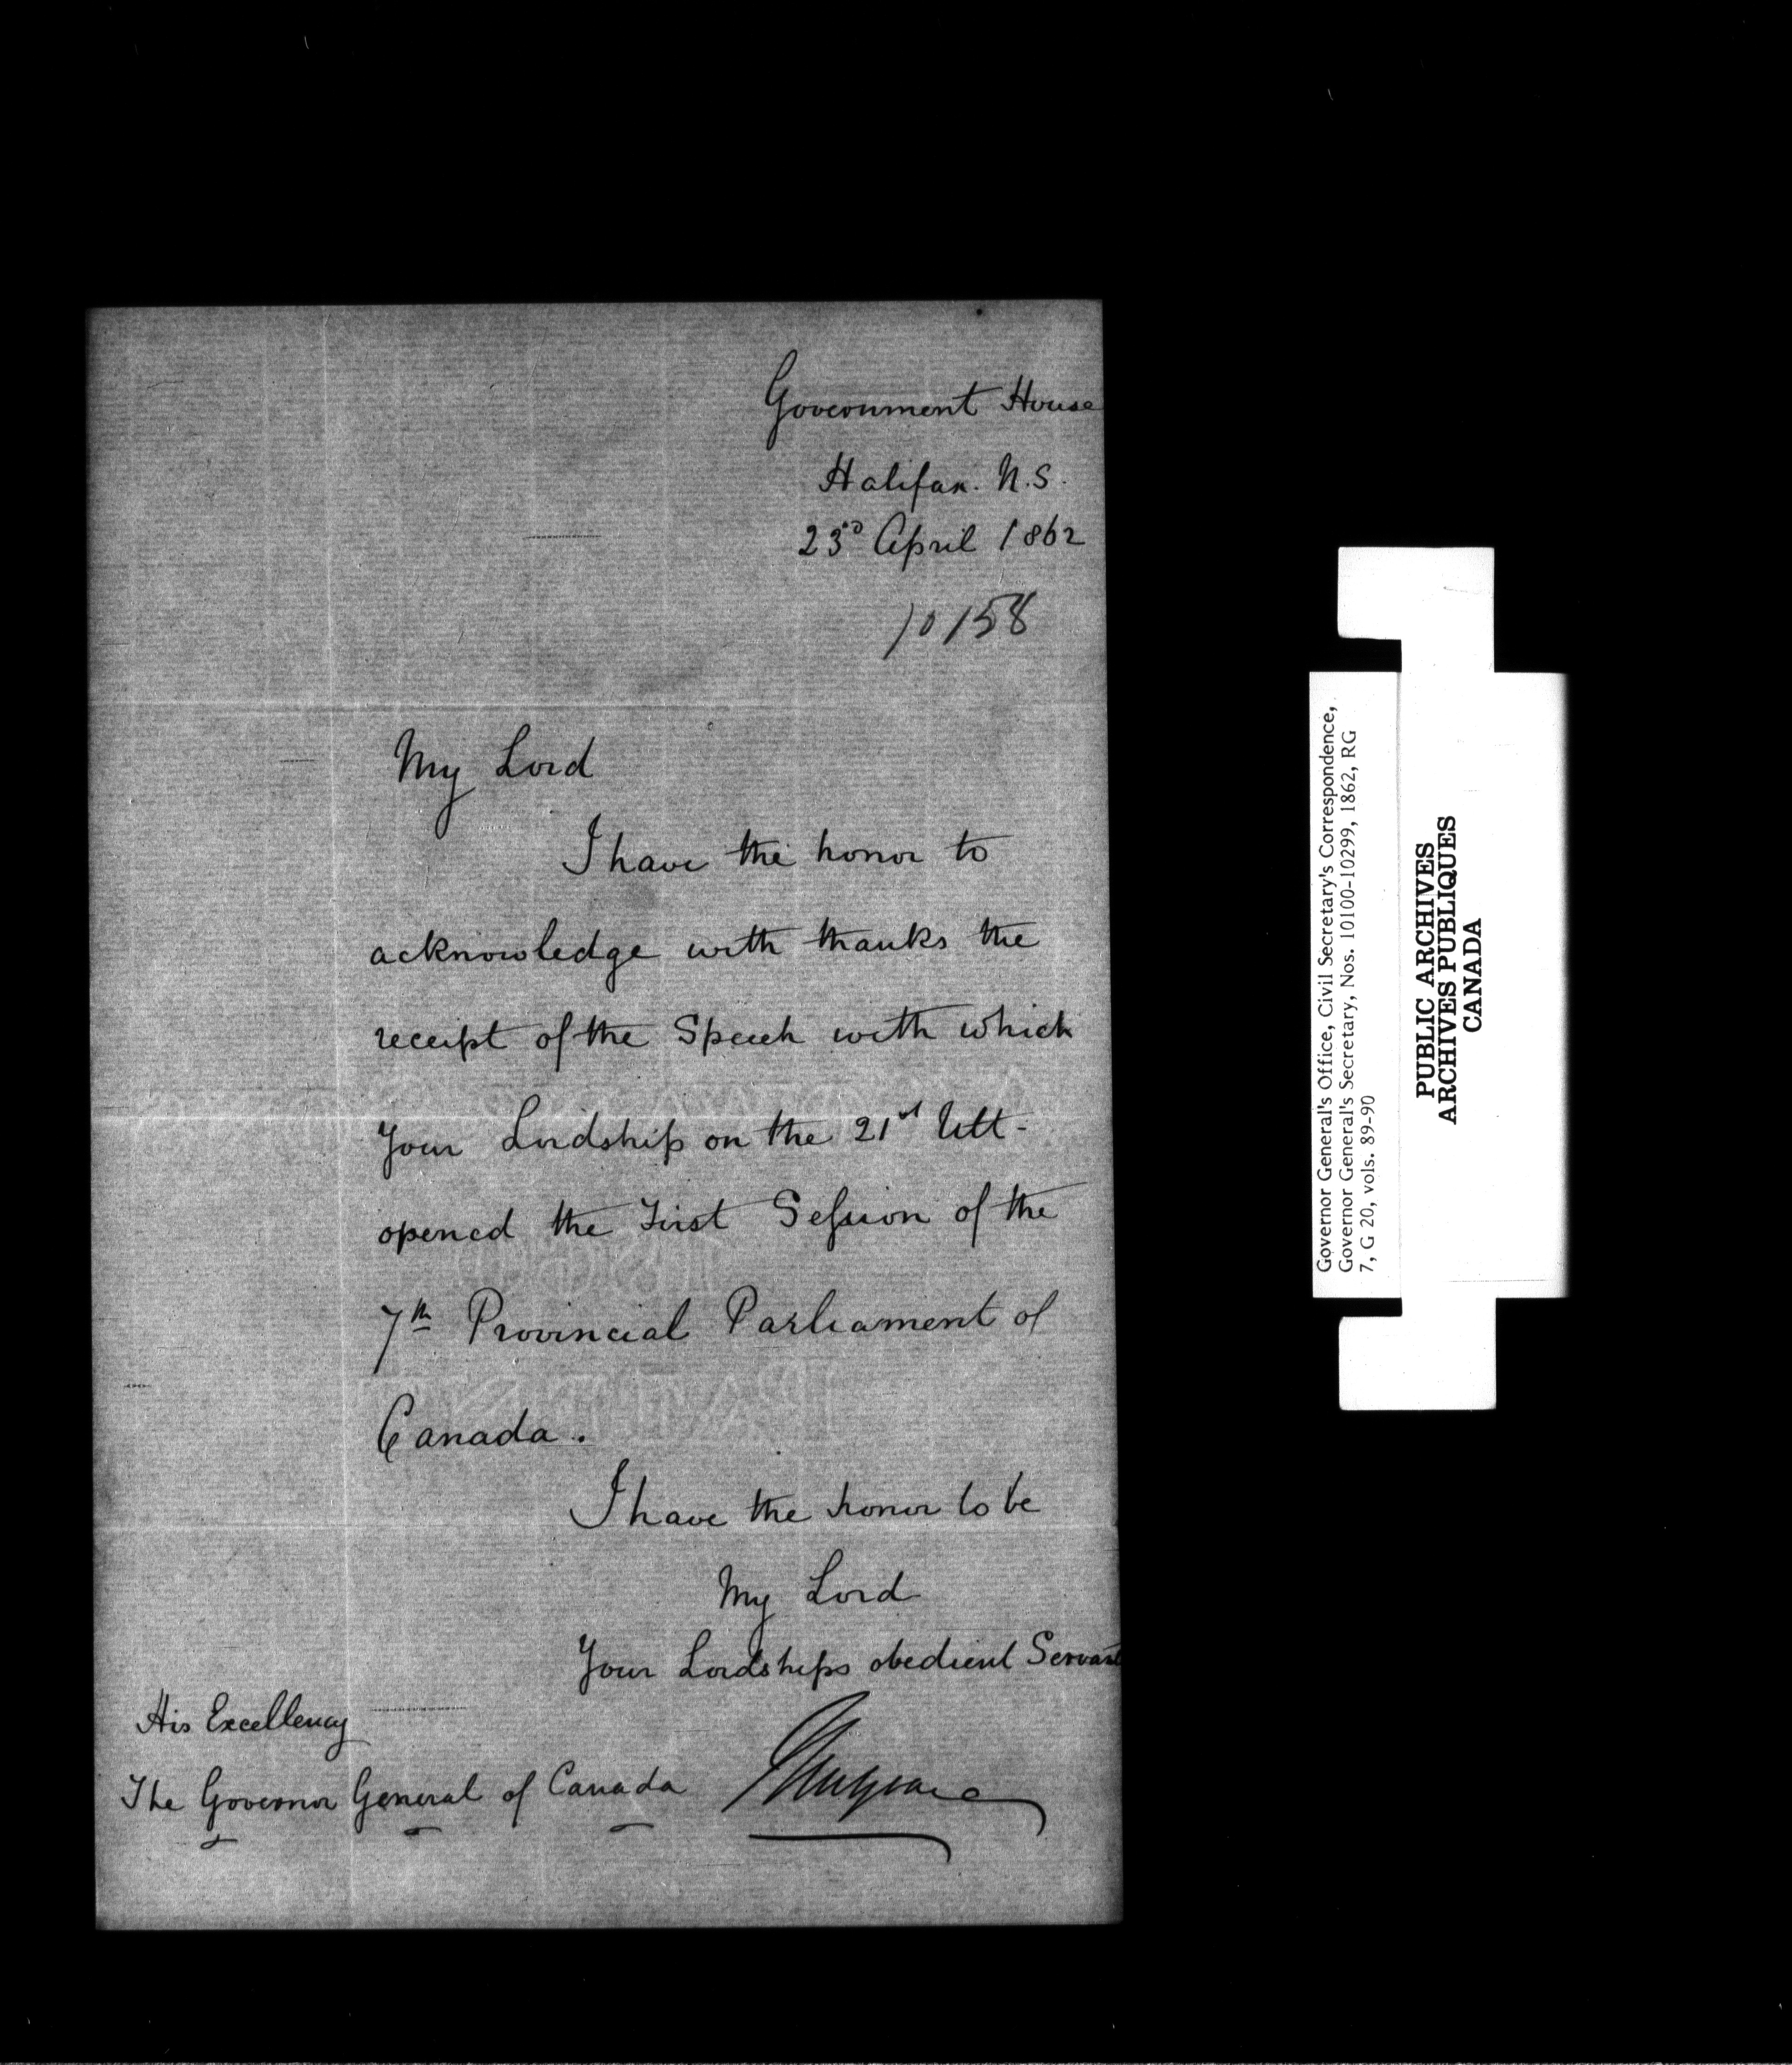 Government House
Halifax. N.S.
23rd April 1862
10158
My Lord
I have the honor to
acknowledge with thanks the
receipt of the Speech with which
Your Lordship on the 21st Ult-
opened the First Session of the
7th Provincial Parliament of
Canada.
I have the honor to be
My Lord
Your Lordships obedient Servant
His Excellency
The Governor General of Canada
Mulgrave
Governor General's Office, Civil Secretary's Correspondence,
Governor General's Secretary, Nos. 10100-10299, 1862, RG
7, G 20, vols. 89-90
PUBLIC ARCHIVES
ARCHIVES PUBLIQUES
CANADA